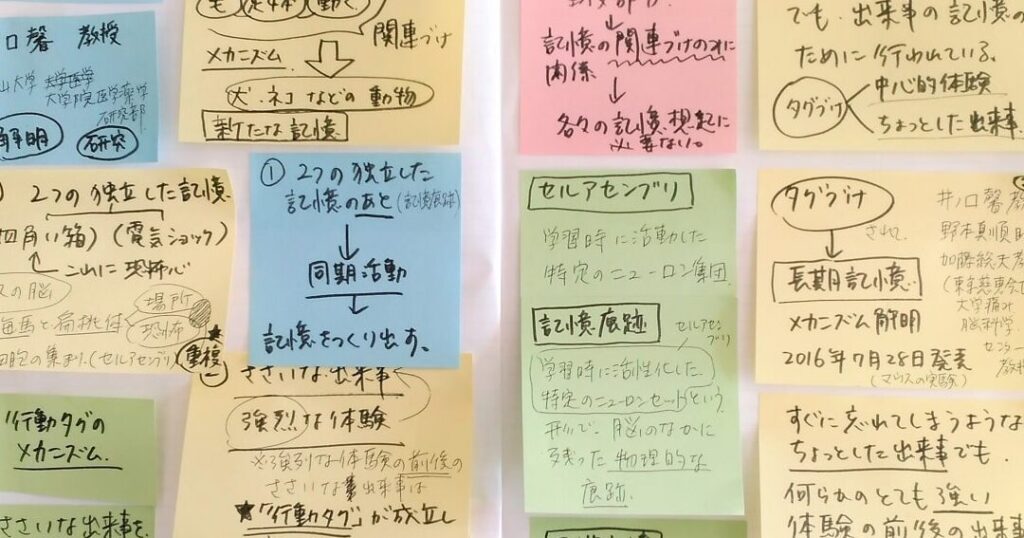 口馨 教授
山大学
大学院医学薬学
研究部
解明
研究
も 定着 動く
関連づけ
メカニズム
犬、ネコ などの 動物
新たな記憶
記憶の関連づけのみに
関係
各々の記憶想起に
必要ない。
でも、出来事の記憶の
ために行われている。
タグづけ
中心的体験
ちょっとした出来事
2つの独立した記憶
四角い箱) (電気ショック)
これに恐怖心
スの脳
海馬と扁桃体
場所
恐怖
細胞の集まり。(セルアセンブリ)
★重複
① 2つの独立した
記憶のあと(記憶痕跡)
同期活動
記憶をつくり出す。
セルアセンブリ
学習時に活動した
特定のニューロン集団
記憶痕跡
セルアセンブリ
学習時に活性化した
特定のニューロンセットという
形で、脳のなかに
残った物理的な
痕跡
タグづけ
され、
長期記憶
メカニズム解明
2016年7月28日発表
(マウスの実験)
井ノ口馨教
野本真順助
加藤総夫教
(東京慈恵会
大学痛み
脳科学
センター
教授
行動タグの
メカニズム
ささいな出来事を
ささいな出来事
強烈な体験
※強烈な体験の前後の
ささいな出来事は
★「行動タグ」が成立し
すぐに忘れてしまうような
ちょっとした出来事でも、
何らかのとても強い
体験の前後の出来事